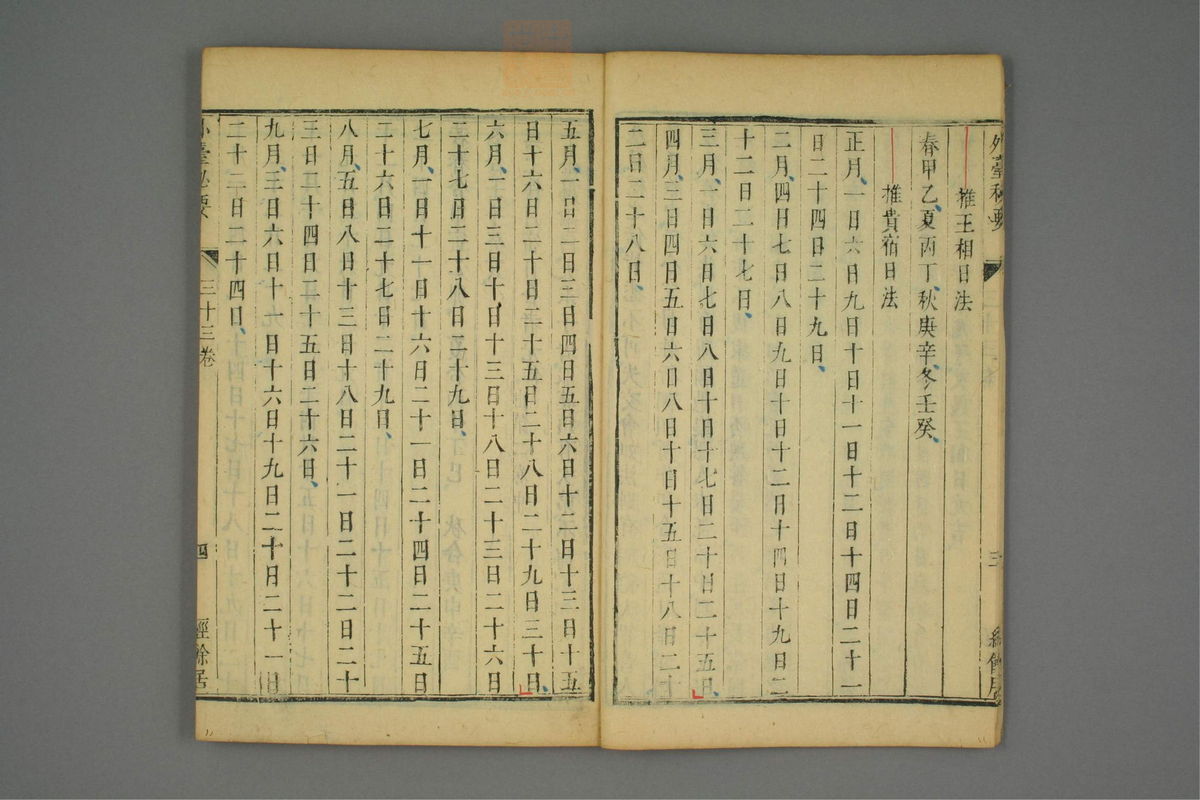 外臺秘要
三
經餘居
推王相日法
春甲乙、夏丙丁、秋庚辛、冬壬癸、
推貴宿日法
正月、一日六日九日十日十一日十二日十四日二十一
日二十四日二十九日、
二月、四日七日八日九日十日十二日十四日十九日二
十二日二十七日、
三月、一日六日七日八日十日十七日二十日二十五日、
四月、三日四日五日六日八日十日十五日十八日二十
二日二十八日、
五月、一日二日三日四日五日六日十二日十三日十五
日十六日二十日二十五日二十八日二十九日三十日、
六月、一日三日十日十三日十八日二十三日二十六日
二十七日二十八日二十九日、
七月、一日十一日十六日二十一日二十四日二十五日
二十六日二十七日二十九日、
八月、五日八日十三日十八日二十一日二十二日二十
三日二十四日二十五日二十六日、
九月、三日六日十一日十六日十九日二十日二十一日
二十二日二十四日、
外臺秘要
三十三卷
四
經餘居